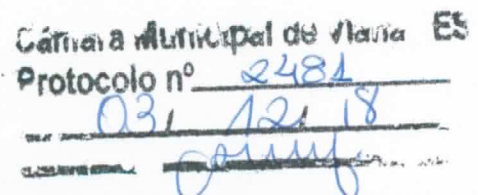 Câmara Municipal de Viana ES
Protocolo nº 2481
03, 12, 18